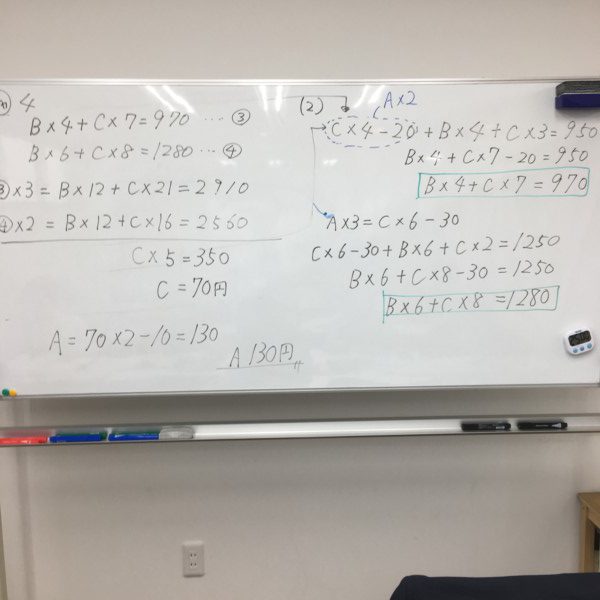 4
B×4+C×7=970 … ③
B×6+C×8=1280 … ④
③×3 = B×12+C×21=2910
④×2 = B×12+C×16=2560
C×5=350
C=70円
A=70×2-10=130
A 130円
(2)
A×2
C×4-20+B×4+C×3=950
B×4+C×7-20=950
B×4+C×7=970
A×3=C×6-30
C×6-30+B×6+C×2=1250
B×6+C×8-30=1250
B×6+C×8=1280